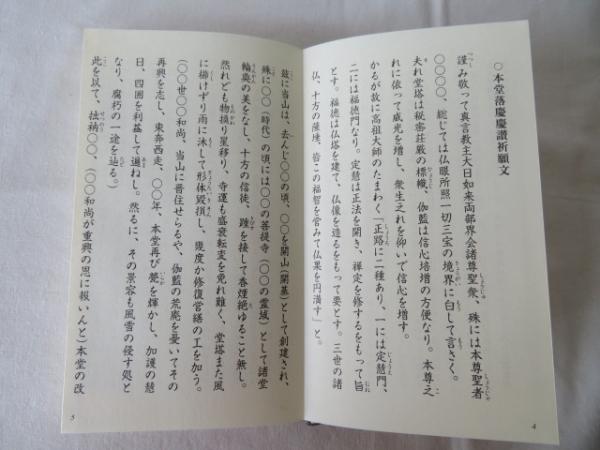 ○本堂落慶慶讃祈願文
謹み敬って真言教主大日如来両部界会諸尊聖衆、殊には本尊聖者
○○○○、総じては仏眼所照一切三宝の境界に白して言さく。
夫れ堂塔は秘密荘厳の標幟、伽藍は信心培増の方便なり。本尊之
れに依って威光を増し、衆生之れを仰いで信心を増す。
かるが故に高祖大師のたまわく「正路に二種あり、一には定慧門、
二には福徳門なり。定慧は正法を開き、禅定を修するをもって旨
とす。福徳は仏塔を建て、仏像を造るをもって要とす。三世の諸
仏、十方の薩埵、皆この福智を営みて仏果を円満す」と。
4
茲に当山は、去んじ○○の頃、○○を開山(開基)として創建され、
殊に○○(時代)の頃には○○の菩提寺(○○の霊域)として諸堂
輪奐の美をなし、十方の信徒、踵を接して香煙絶ゆること無し。
然れども物換り星移り、寺運も盛衰転変を免れ難く、堂塔また風
に櫛けずり雨に沐して形体毀損し、幾度か修復営繕の工を加う。
(○○世○○和尚、当山に晋住せらるや、伽藍の荒廃を憂いてその
再興を志し、東奔西走、○○年、本堂再び甍を輝かし、加護の慈
日、四囲を利益して遍ねし。然るに、その景容も風雪の侵す処と
なり、腐朽の一途を辿る。)
此を以て、拙衲○○、(○○和尚が重興の恩に報いんと)本堂の改
5